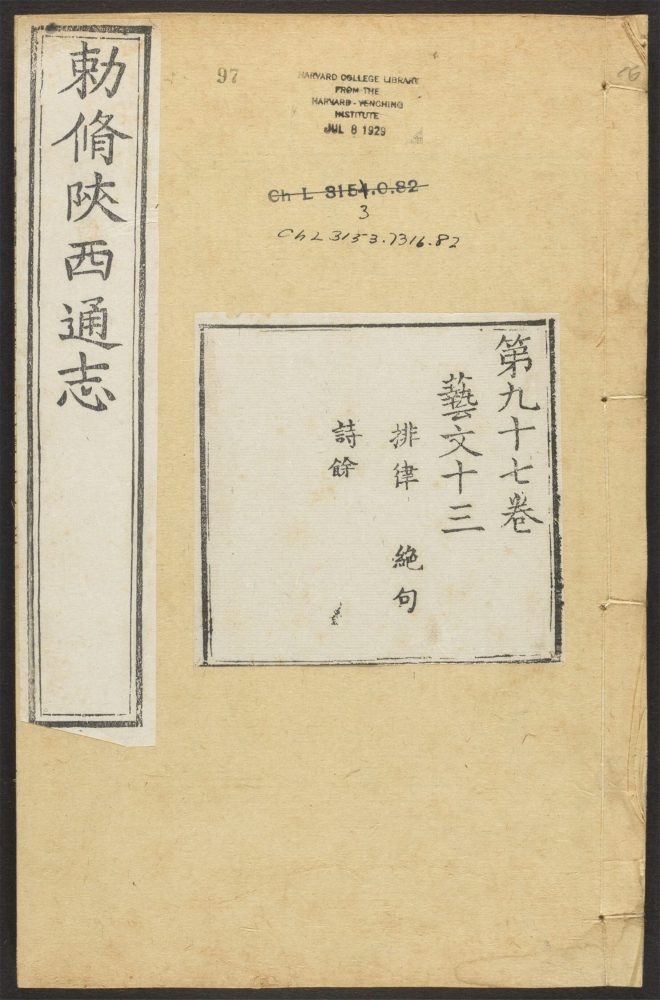 勅脩陝西通志
97
HARVARD COLLEGE LIBRARY
FROM THE
HARVARD-YENCHING
INSTITUTE
JUL 8 1929
Ch L 3154.0.82
3
Ch L 3153.7316.82
第九十七卷
藝文十三
排律 絶句
詩餘